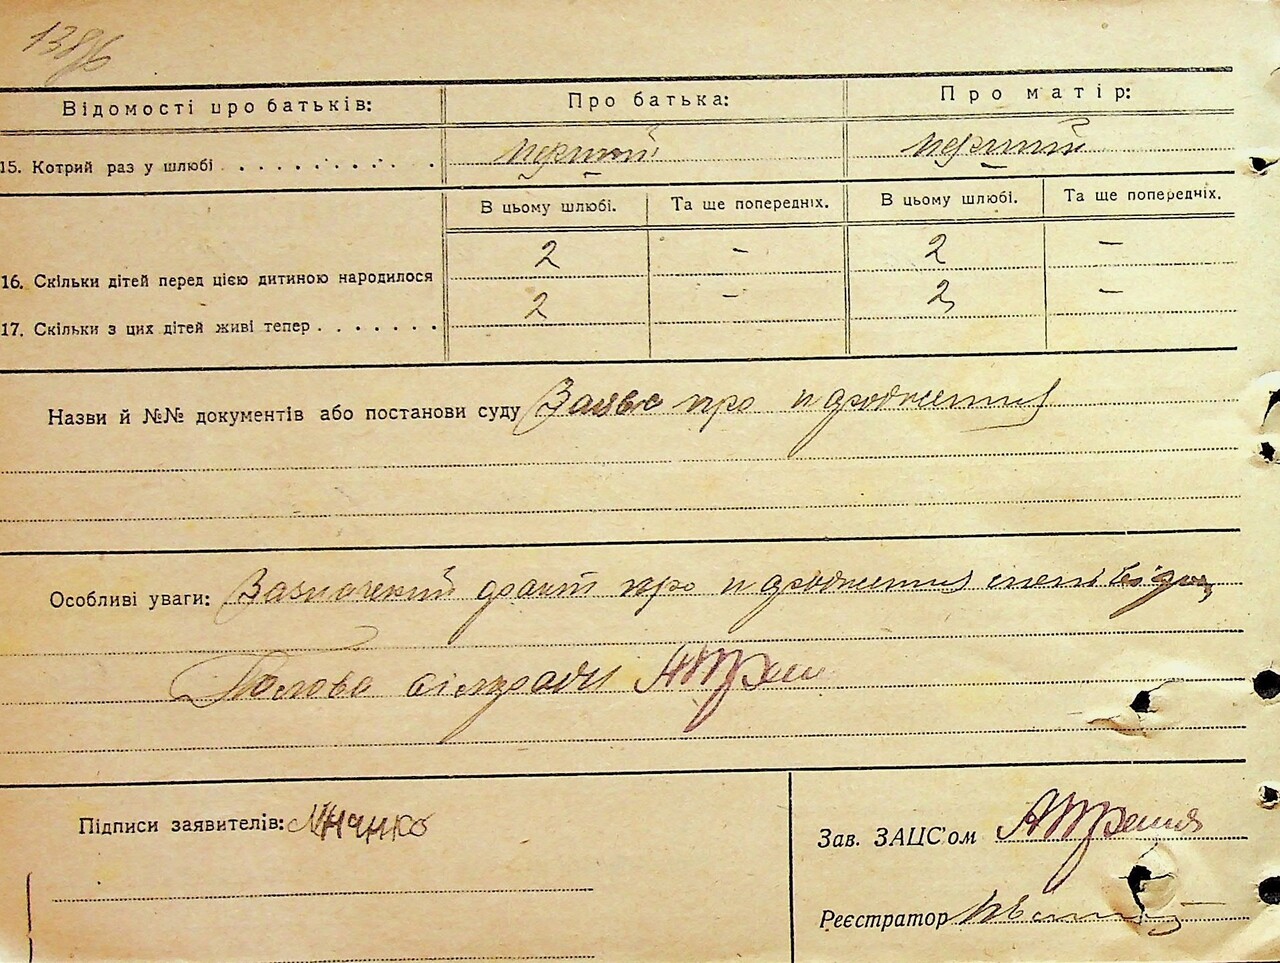 1386
Відомості про батьків: Про батька: Про матір:
15. Котрий раз у шлюбі . . . . . . . . . перший перший
В цьому шлюбі. Та ще попередніх. В цьому шлюбі. Та ще попередніх.
16. Скільки дітей перед цією дитиною народилося 2 - 2 -
17. Скільки з цих дітей живі тепер . . . . . . . 2 - 2 -
Назви й №№ документів або постанови суду Заява про народження
Особливі уваги: Зазначений факт про народження
Голова сільради
Підписи заявителів:
Зав. ЗАЦС'ом
Реєстратор